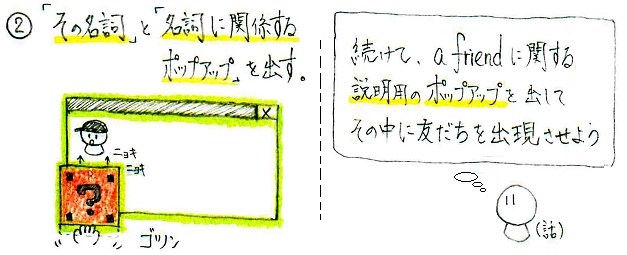 ② 「その名詞」と「名詞に関係する
ポップアップ」を出す。
X
ニョキ
ニョキ
?
ゴツン
続けて、a friendに関する
説明用のポップアップを出して
その中に友だちを出現させよう
(話)